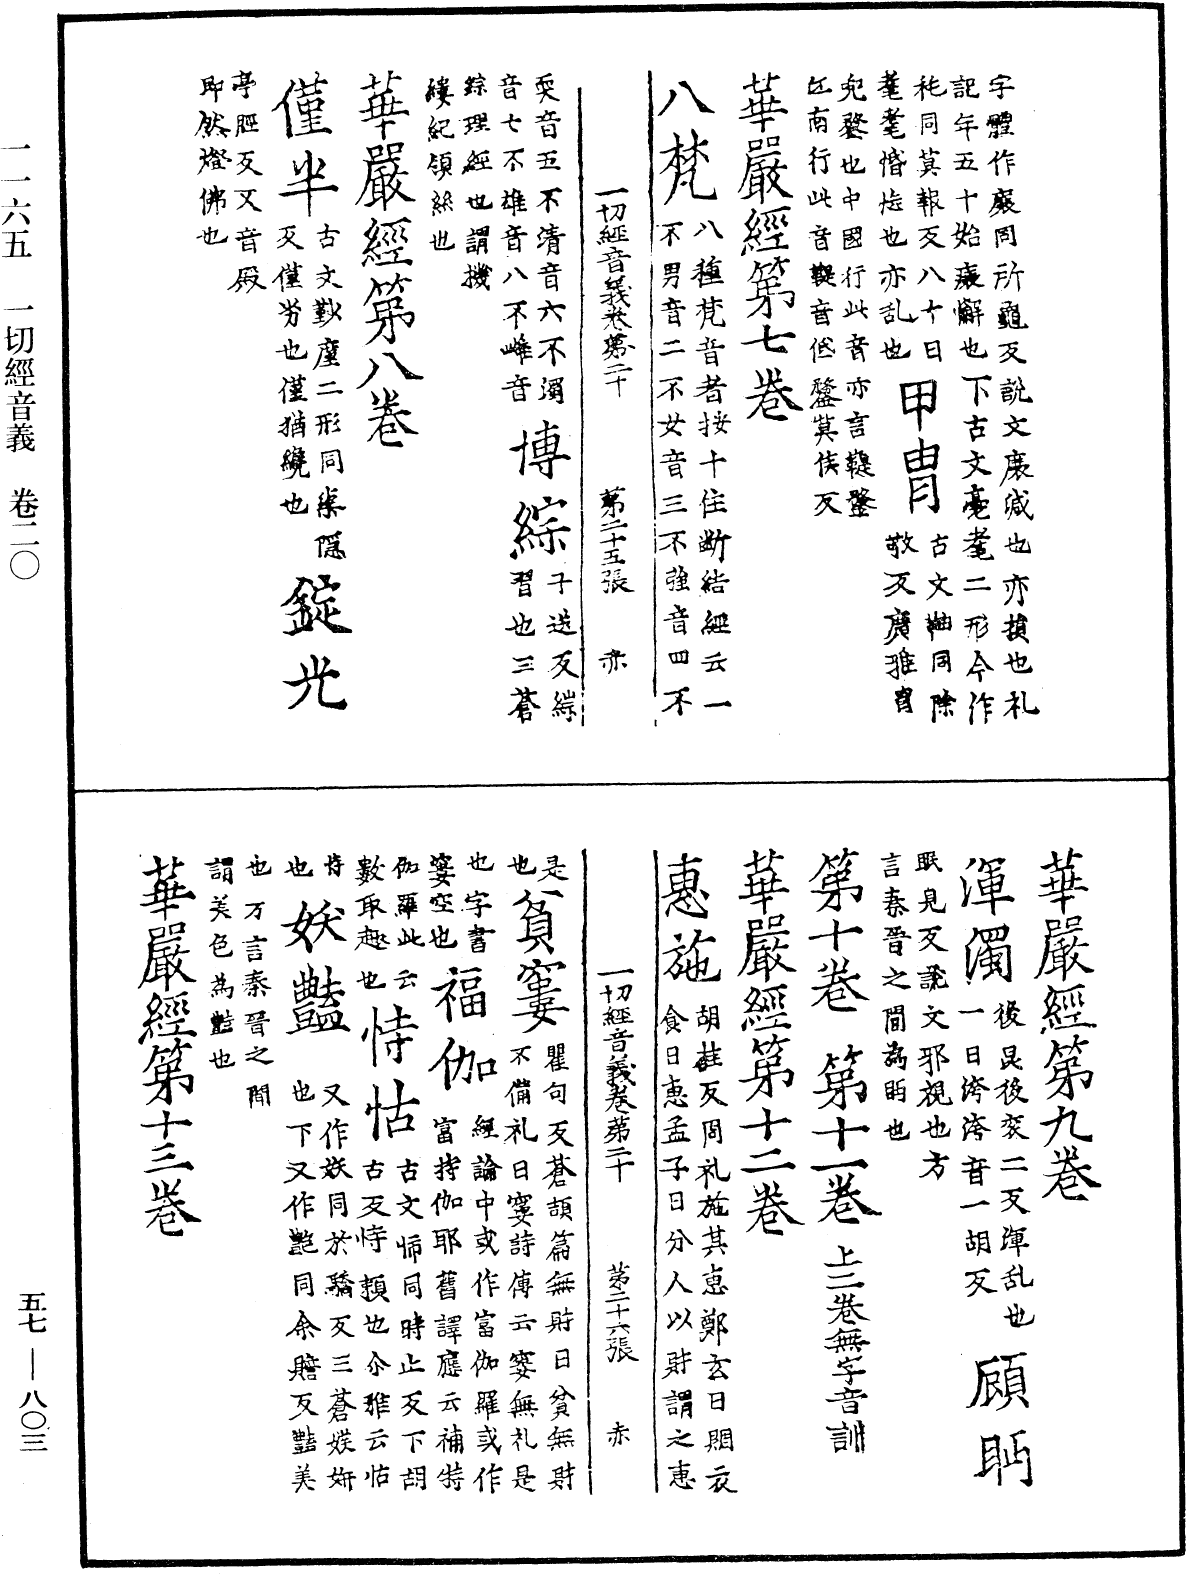 一一六五 一切經音義 卷二〇
五七 — 八〇三
字體作癈同所龜反說文癈減也亦損也礼
記年五十始癈懈也下古文毫耄二形今作
秏同莫報反八十曰
耄耄惛忘也亦乱也
甲冑
古文𩊄同除
救反廣雅冑
兜鍪也中國行此音亦言鞮鍪
江南行此音鞮音低鍪莫侯反
華嚴經第七卷
八梵
八種梵音者按十住断結經云一
不男音二不女音三不強音四不
一切經音義卷第二十 第二十五張 赤
耎音五不清音六不濁
音七不雄音八不雌音
博綜
子送反綜
習也三蒼
綜理經也謂機
縷紀領絲也
華嚴經第八卷
僅半
古文勤廑二形同渠隱
反僅劣也僅猶纔也
錠光
亭脛反又音殿
即然燈佛也
華嚴經第九卷
渾濁
後昆後衮二反渾乱也
一曰洿洿音一胡反
顧眄
眠見反說文邪視也方
言秦晉之間為眄也
第十卷 第十一卷 上二卷無字音訓
華嚴經第十二卷
惠施
胡桂反周礼施其惠鄭玄曰賙衣
食曰惠孟子曰分人以財謂之惠
一切經音義卷第二十 第二十六張 赤
是
也
貧窶
瞿句反蒼頡篇無財曰貧無財
不備礼曰窶詩傳云窶無礼是
也字書
窶空也
福伽
經論中或作富伽羅或作
富特伽耶舊譯應云補特
伽羅此云
數取趣也
恃怙
古文㤅同時止反下胡
古反恃賴也尒雅云怙
恃
也
妖豔
又作妖同於驕反三蒼媄妍
也下又作艷同余贍反豔美
也方言秦晉之間
謂美色為豔也
華嚴經第十三卷